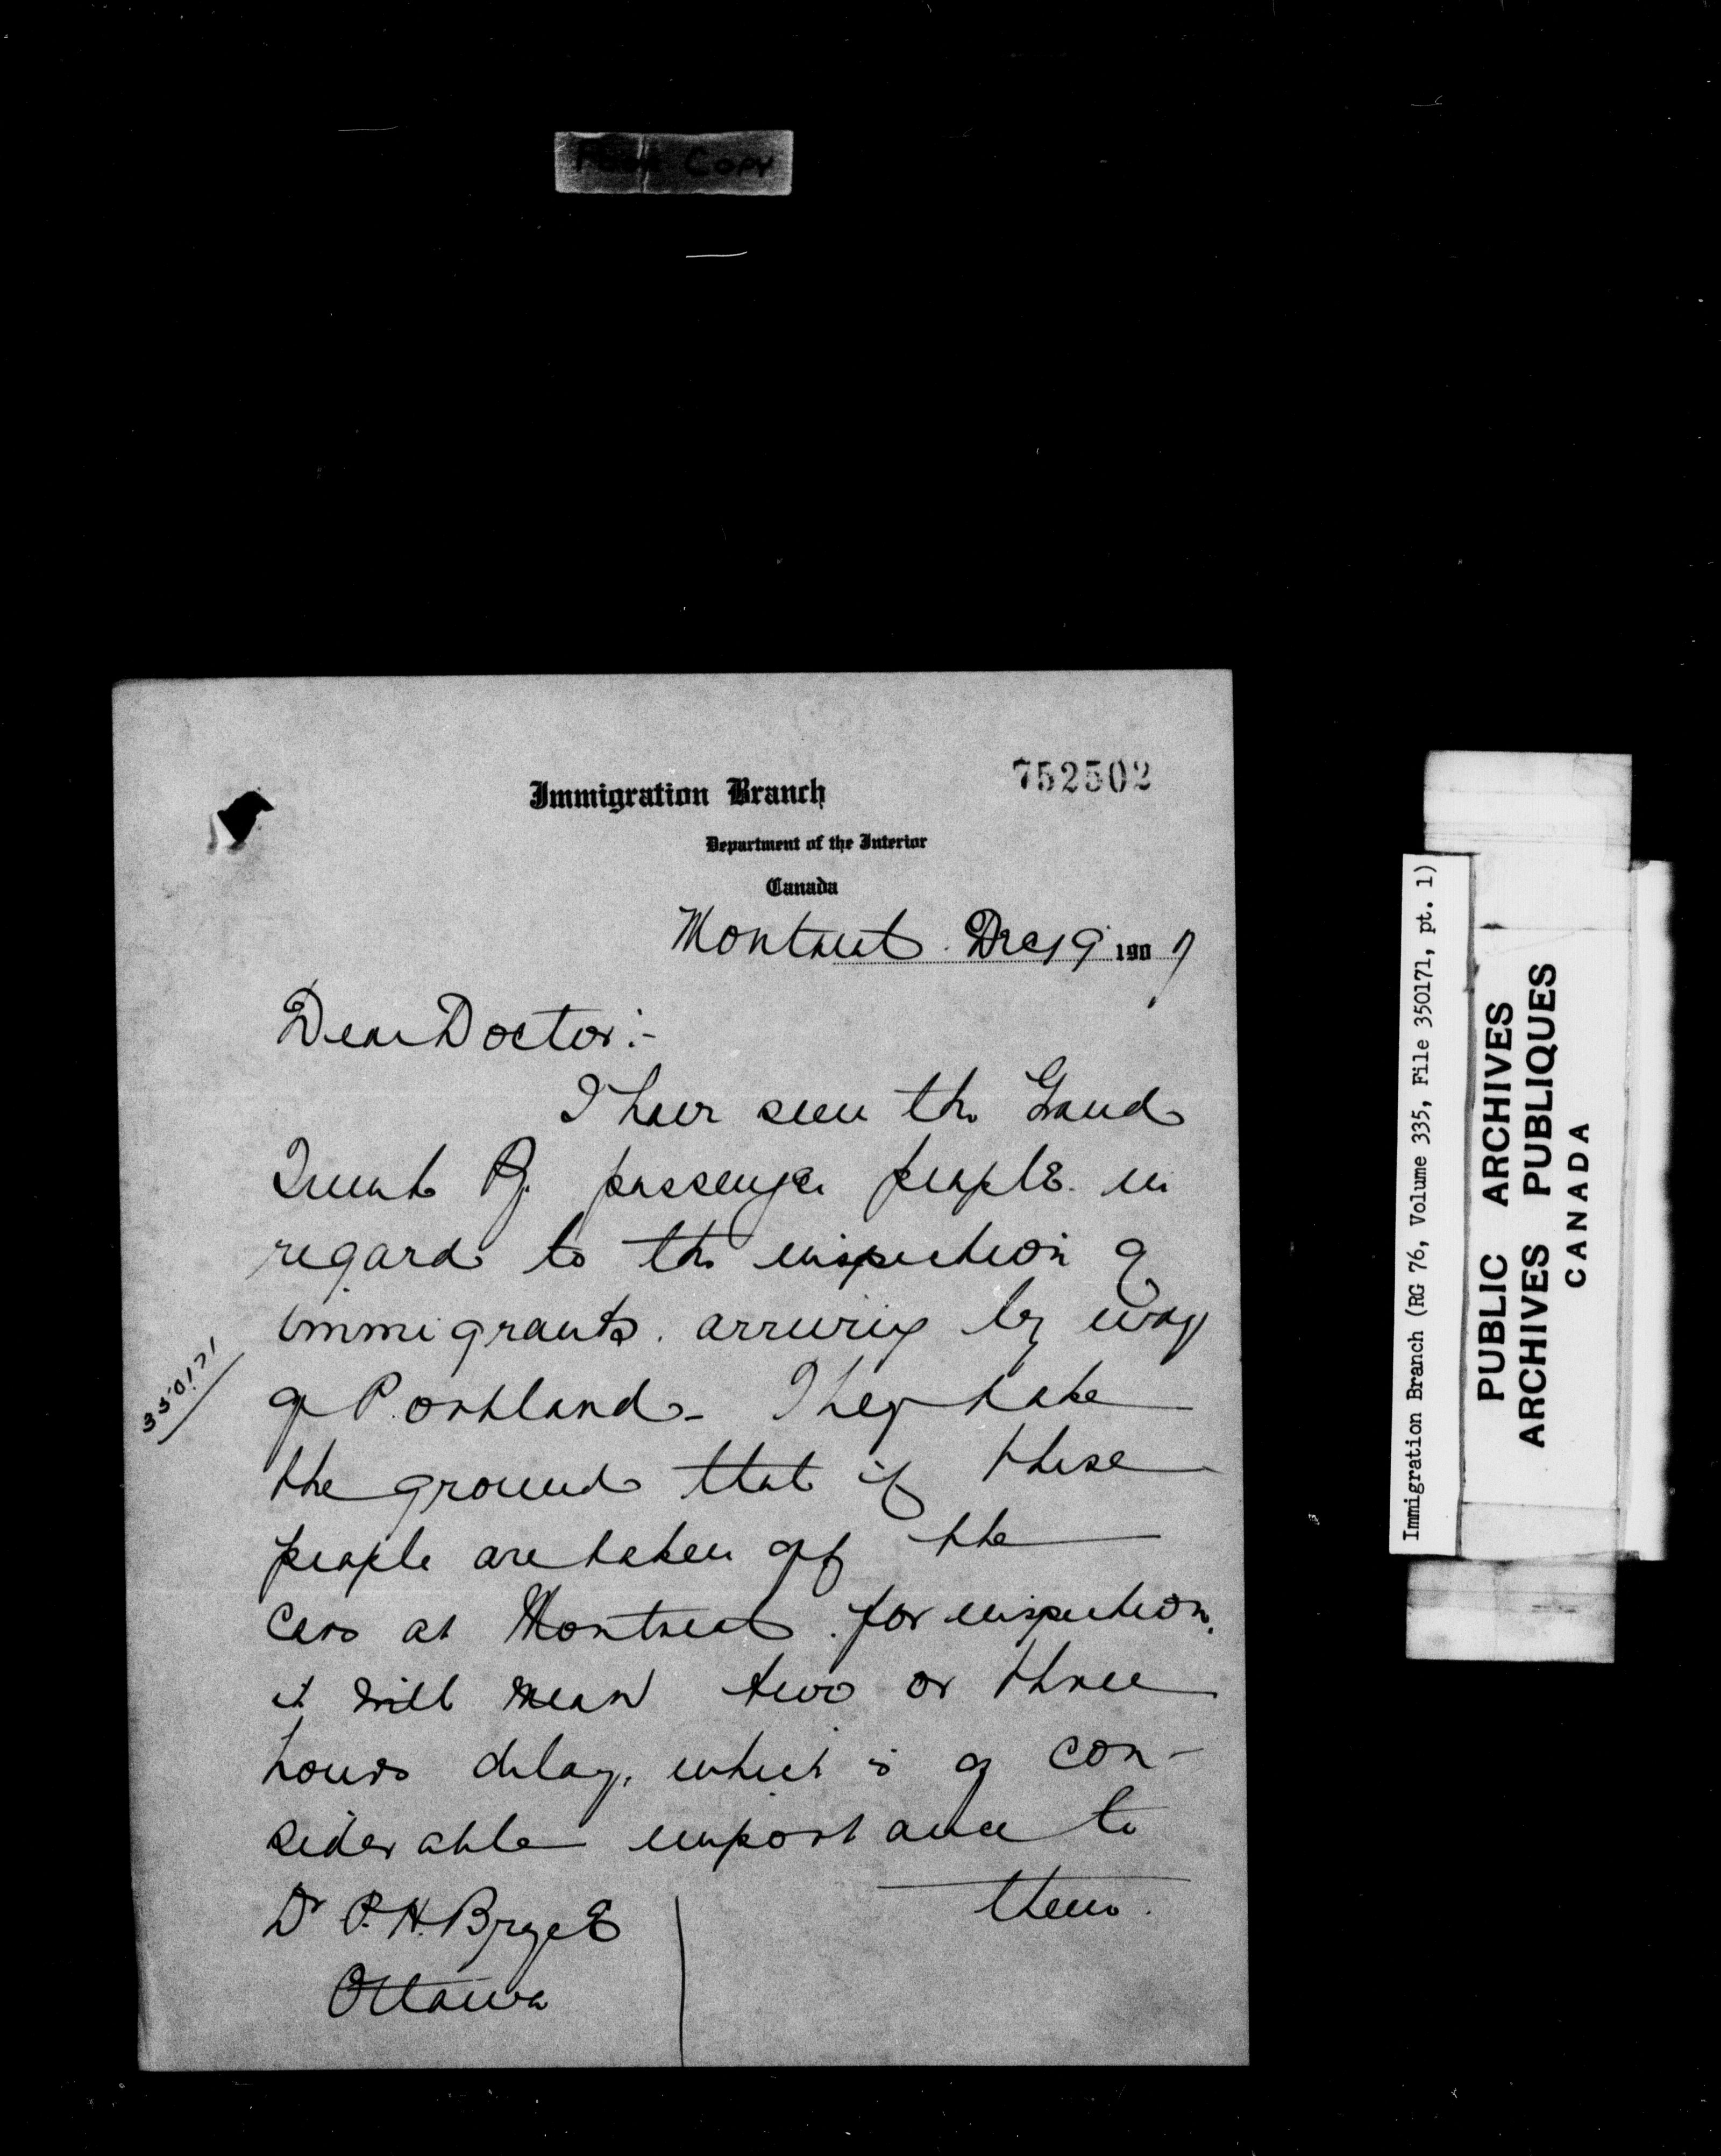 Poor Copy
752502
Immigration Branch
Department of the Interior
Canada
Montreal Dec 19 1907
Dear Doctor:-
I have seen the Grand
Trunk Ry. passenger people in
regard to the inspection of
immigrants. arriving by way
of Portland - They take
the ground that if these
people are taken off the
cars at Montreal for inspection,
it will mean two or three
hours delay, which is of con-
siderable importance to
them.
Dr P.H. Bryce
Ottawa
350171
Immigration Branch (RG 76, Volume 335, File 350171, pt. 1)
PUBLIC ARCHIVES
ARCHIVES PUBLIQUES
CANADA